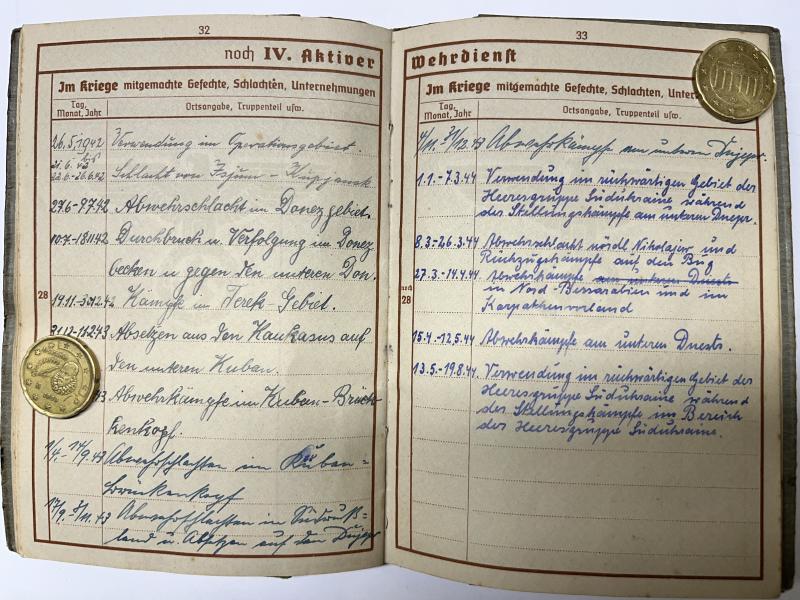 32
noch IV. Aktiver
Im Kriege mitgemachte Gefechte, Schlachten, Unternehmungen
Tag, Monat, Jahr
Ortsangabe, Truppenteil usw.
26.5.1942 Verwendung im Operationsgebiet.
22.6.-26.6.42 Schlacht von Isjum - Kupjansk
27.6.-9.7.42 Abwehrschlacht im Donezgebiet.
10.7.-18.11.42 Durchbruch u. Verfolgung im Donez
becken u. gegen den unteren Don.
28
19.11.- .12.42 Kämpfe im Terek-Gebiet.
Absetzen aus dem Kaukasus auf
den unteren Kuban.
Abwehrkämpfe im Kuban-Brück
kenkopf
1/4.- /9.43 Abwehrschlachten im Kuban-
brückenkopf
17/9.- /11.43 Abwehrschlachten in Südruß-
land u. Absetzen auf den Dnjepr
33
Wehrdienst
Im Kriege mitgemachte Gefechte, Schlachten, Unter
Tag, Monat, Jahr
Ortsangabe, Truppenteil usw.
4/11.-31/12.43 Abwehrkämpfe am unteren Dnjepr.
1.1.-7.3.44 Verwendung im rückwärtigen Gebiet der
Heeresgruppe Südukraine während
der Stellungskämpfe am unteren Dnepr.
8.3.-26.3.44 Abwehrschlacht nördl Nikolajew und
Rückzugskämpfe auf den Bug
27.3.-14.4.44 Abwehrkämpfe am unteren Dnestr
noch 28
in Nord-Bessarabien und im
Karpatenvorland
15.4.-12.5.44 Abwehrkämpfe am unteren Dnestr.
13.5.-19.8.44 Verwendung im rückwärtigen Gebiet der
Heeresgruppe Südukraine während
der Stellungskämpfe im Bereich
der Heeresgruppe Südukraine.